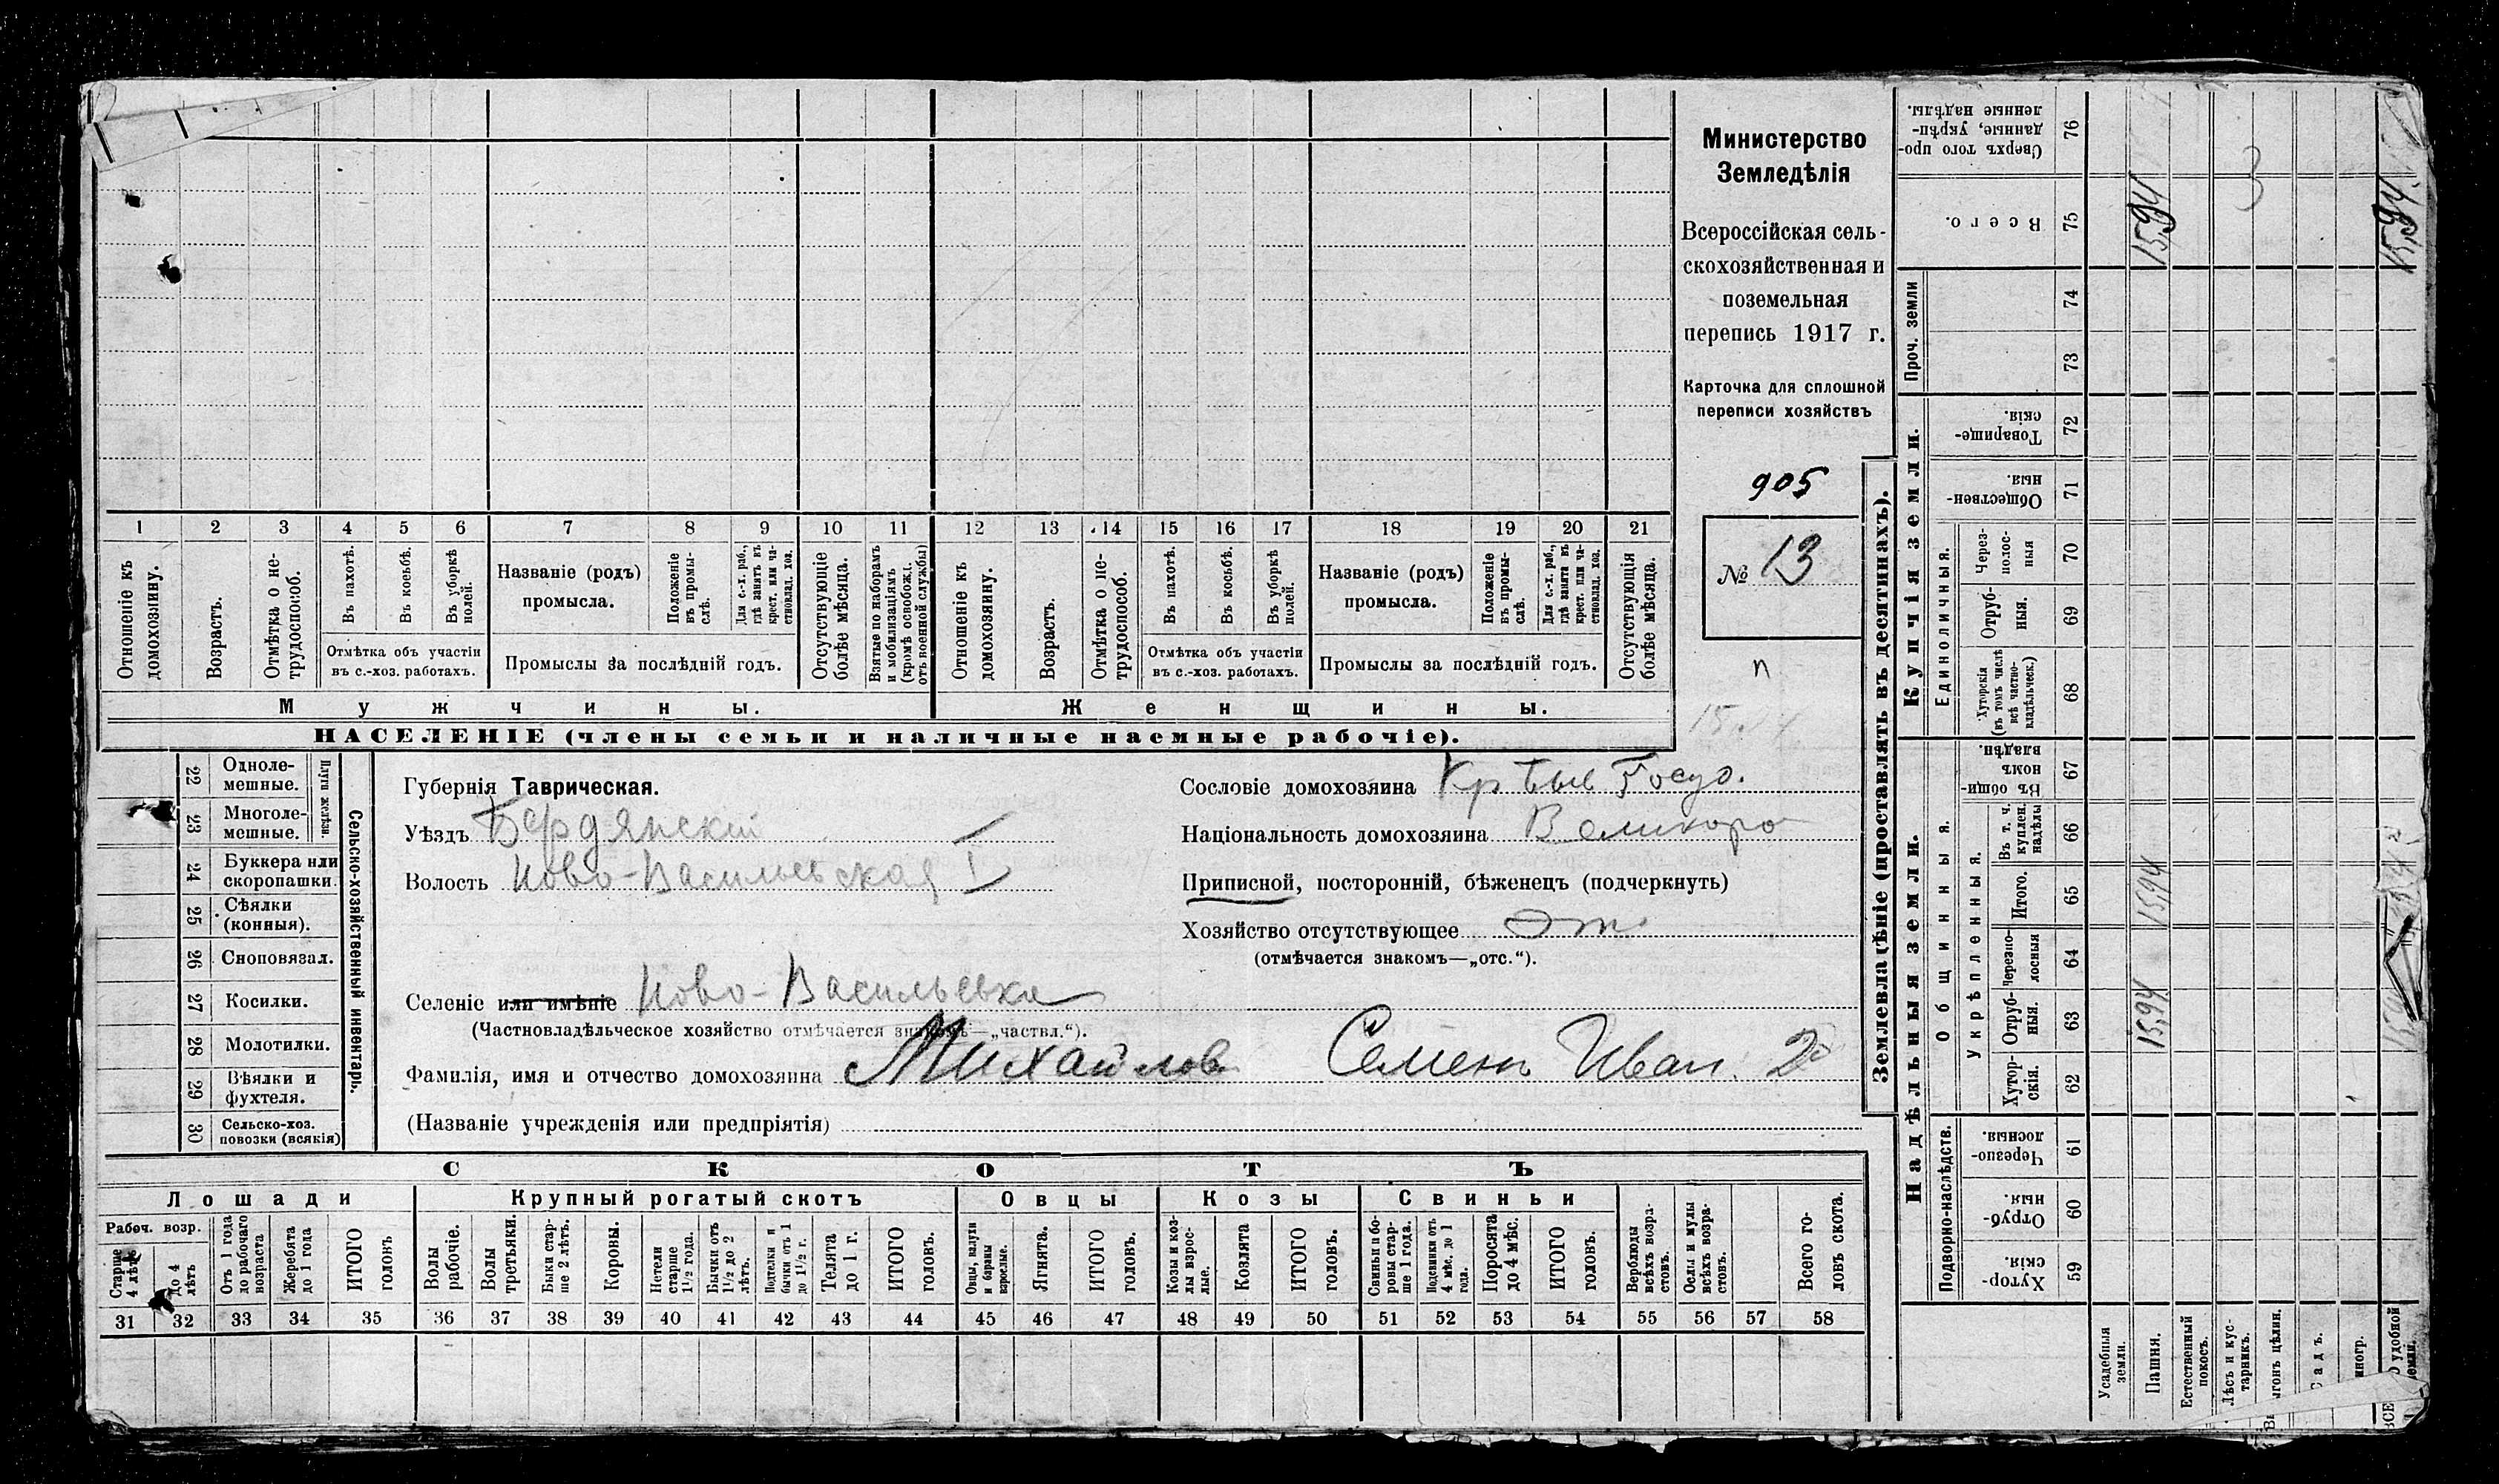 Министерство
Земледѣлія
Всероссійская сель-
скохозяйственная и
поземельная
перепись 1917 г.
Карточка для сплошной
переписи хозяйствъ
905
№ 13
п
1 2 3 4 5 6 7 8 9 10 11 12 13 14 15 16 17 18 19 20 21
Отношеніе къ домохозяину.
Возрастъ.
Отмѣтка о не-трудоспособ.
Въ пахотѣ.
Въ косьбѣ.
Въ уборкѣ полей.
Отмѣтка объ участіи
въ с.-хоз. работахъ.
Названіе (родъ)
промысла.
Положеніе въ промы-слѣ.
Для с.-х. раб., гдѣ занятъ въ крест. или ча-стновлад. хоз.
Промыслы за послѣдній годъ.
Отсутствующіе болѣе мѣсяца.
Взятые по наборамъ и мобилизаціямъ (кромѣ освобожд. отъ военной службы)
Отношеніе къ домохозяину.
Возрастъ.
Отмѣтка о не-трудоспособ.
Въ пахотѣ.
Въ косьбѣ.
Въ уборкѣ полей.
Отмѣтка объ участіи
въ с.-хоз. работахъ.
Названіе (родъ)
промысла.
Положеніе въ промы-слѣ.
Для с.-х. раб., гдѣ занята въ крест. или ча-стновлад. хоз.
Промыслы за послѣдній годъ.
Отсутствующія болѣе мѣсяца.
Мужчины. Женщины.
НАСЕЛЕНІЕ (члены семьи и наличные наемные рабочіе).
22 Одноле-мешные.
23 Многоле-мешные.
Плуги желѣзн.
24 Буккера или скоропашки.
25 Сѣялки (конныя).
26 Сноповязал.
27 Косилки.
28 Молотилки.
29 Вѣялки и фухтеля.
30 Сельско-хоз. повозки (всякія)
Сельско-хозяйственный инвентарь.
Губернія Таврическая.
Уѣздъ Бердянскій
Волость Ново-Васильевская I
Селеніе или имѣніе Ново-Васильевка
(Частновладѣльческое хозяйство отмѣчается знакомъ—„частвл.“).
Фамилія, имя и отчество домохозяина Михайлов Семенъ Иван. 2й
(Названіе учрежденія или предпріятія)
Сословіе домохозяина Кр бые Госуд.
Національность домохозяина Великоро
Приписной, посторонній, бѣженецъ (подчеркнуть)
Хозяйство отсутствующее От
(отмѣчается знакомъ—„отс.“).
СКОТЪ
Лошади Крупный рогатый скотъ Овцы Козы Свиньи
Рабоч. возр.
Старше 4 лѣтъ
до 4 лѣтъ
Отъ 1 года до рабочаго возраста
Жеребята до 1 года
ИТОГО головъ
Волы рабочіе.
Волы третьяки.
Быки стар-ше 2 лѣтъ.
Коровы.
Нетели старше 1½ года.
Бычки отъ 1½ до 2 лѣтъ.
Подтелки и бычки отъ 1 до 1½ г.
Телята до 1 г.
ИТОГО головъ.
Овцы, валухи и бараны взрослые.
Ягнята.
ИТОГО головъ.
Козы и коз-лы взрос-лые.
Козлята
ИТОГО головъ.
Свиньи и бо-ровы стар-ше 1 года.
Подсвинки отъ 4 мѣс. до 1 года.
Поросята до 4 мѣс.
ИТОГО головъ.
Верблюды всѣхъ возра-стовъ.
Ослы и мулы всѣхъ возра-стовъ.
Всего го-ловъ скота.
31 32 33 34 35 36 37 38 39 40 41 42 43 44 45 46 47 48 49 50 51 52 53 54 55 56 57 58
Землевладѣніе (проставлять въ десятинахъ).
Купчія земли.
Надѣльныя земли.
Проч. земли
Единоличныя.
Общинныя.
Укрѣпленныя.
Подворно-наслѣдств.
Сверхъ того про-данные, укрѣп-ленные надѣлы. 76
Всего. 75
74
73
Товарище-скія. 72
Обществен-ныя. 71
Через-полос-ныя 70
Отруб-ныя. 69
Хуторскія (въ томъ числѣ всѣ частно-владѣльческ.) 68
Въ общин-номъ владѣн. 67
Въ т. ч. куплен. надѣлы 66
Итого. 65
Черезпо-лосныя 64
Отруб-ныя. 63
Хутор-скія. 62
Черезпо-лосныя. 61
Отруб-ныя. 60
Хутор-скія. 59
Усадебныя земли.
Пашня.
Естественный покосъ.
Лѣсъ и кус-тарникъ.
Садъ.
15,94
3
15,94
15,94
15,94